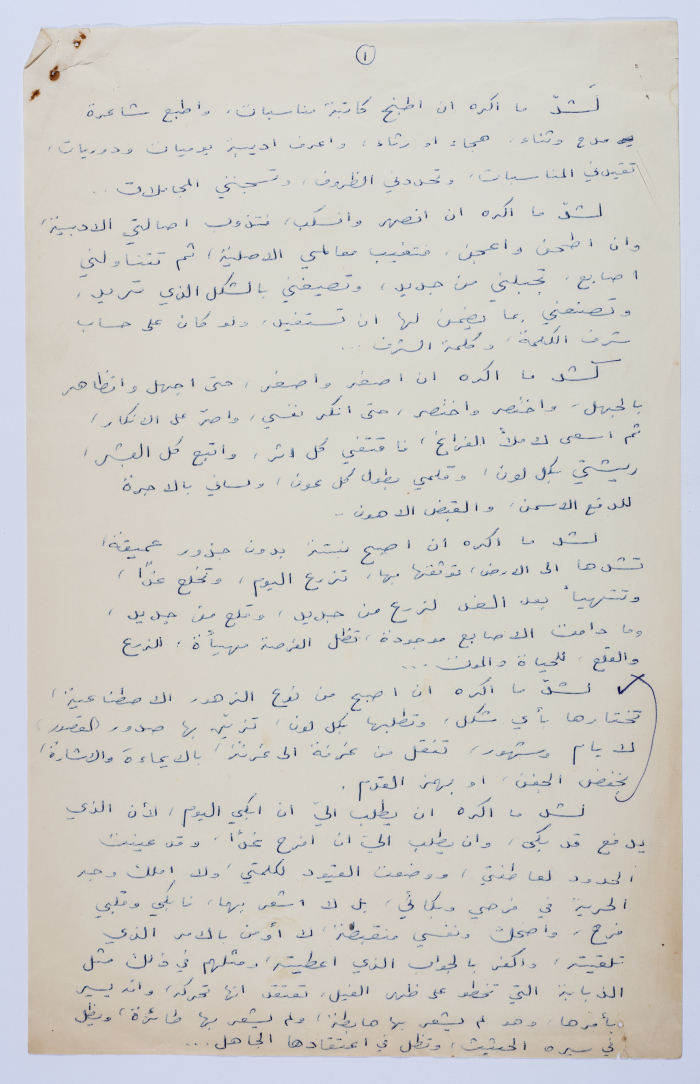 ١
لَشدّ ما اكره ان اصبح كاتبة مناسبات، واطبع شاعرة
مدح وثناء، هجاء او رثاء، واعرف اديبة يوميات ودوريات،
تقيدني المناسبات، وتحددني الظروف، وتسجنني المجاملات..
لشدّ ما اكره ان انصهر وانسكب، فتذوب اصالتي الادبية،
وان اطحن واعجن، فتغيب معالمي الاصلية، ثم تتناولني
اصابع، تجبلني من جديد، وتصيغني بالشكل الذي تريد،
وتصنعني بما يضمن لها ان تستفيد، ولو كان على حساب
شرف الكلمة، وكلمة الشرف...
لشد ما اكره ان اصغر واصغر، حتى اجهل واتظاهر
بالجهل، واختصر واختصر، حتى انكر نفسي، واصرّ على الانكار،
ثم اسعى لاملأ الفراغ، فاقتفي كل اثر، واتبع كل البشر،
ريشتي بكل لون، وقلمي بطول كل عون، ولساني بالاجرة
للدفع الاسمن، والقبض الاهون..
لشد ما اكره ان اصبح نبتة بدون جذور عميقة،
تشدها الى الارض، توثقها بها، تزرع اليوم، وتخلع غدًا،
وتتهيأ بعد الغد لزرع من جديد، وقلع من جديد،
وما دامت الاصابع موجودة، تظل الفرصة مهيأة، للزرع
والقلع، للحياة والموت...
لشدّ ما اكره ان اصبح من نوع الزهور الاصطناعية،
تختارها بأي شكل، وتطلبها بكل لون، تزيّن بها صدور القصور،
لايام وشهور، تنقل من غرفة الى غرفة، بالايماءة والاشارة،
بخفض الجفن، او بهز القدم.
لشد ما اكره ان يطلب اليّ ان ابكي اليوم، لأن الذي
يدفع قد بكى، وان يطلب اليّ ان افرح غدًا، وقد عينت
الحدود لعاطفتي، ووضعت القيود لكلمتي، ولا املك وجه
الحرية في فرحي وبكائي، بل لا اشعر بها، فابكي وقلبي
فرح، واضحك ونفسي منقبضة، لا أؤمن بالامر الذي
تلقيته، واكفر بالجواب الذي اعطيته، ومثلهم في ذلك مثل
الذبابة التي تخطو على ظهر الفيل، تعتقد انها تحركه، وانه يسير
بأمرها، وهو لم يشعر بها هابطة، ولم يشعر بها طائرة، ويظل
في سيره الحثيث، وتظل في اعتقادها الجاهل...